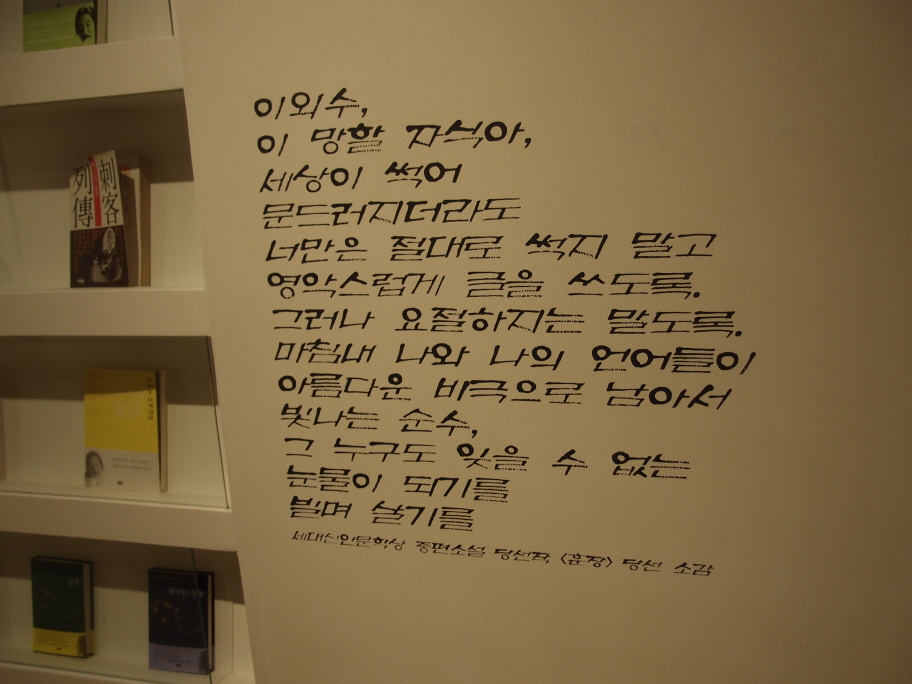 이외수,
이 망할 자식아,
세상이 썩어
문드러지더라도
너만은 절대로 썩지 말고
영악스럽게 글을 쓰도록.
그러나 요절하지는 말도록.
마침내 나와 나의 언어들이
아름다운 비극으로 남아서
빛나는 순수,
그 누구도 잊을 수 없는
눈물이 되기를
빌며 살기를
세대신인문학상 중편소설 당선작, <훈장> 당선 소감
刺客
列傳